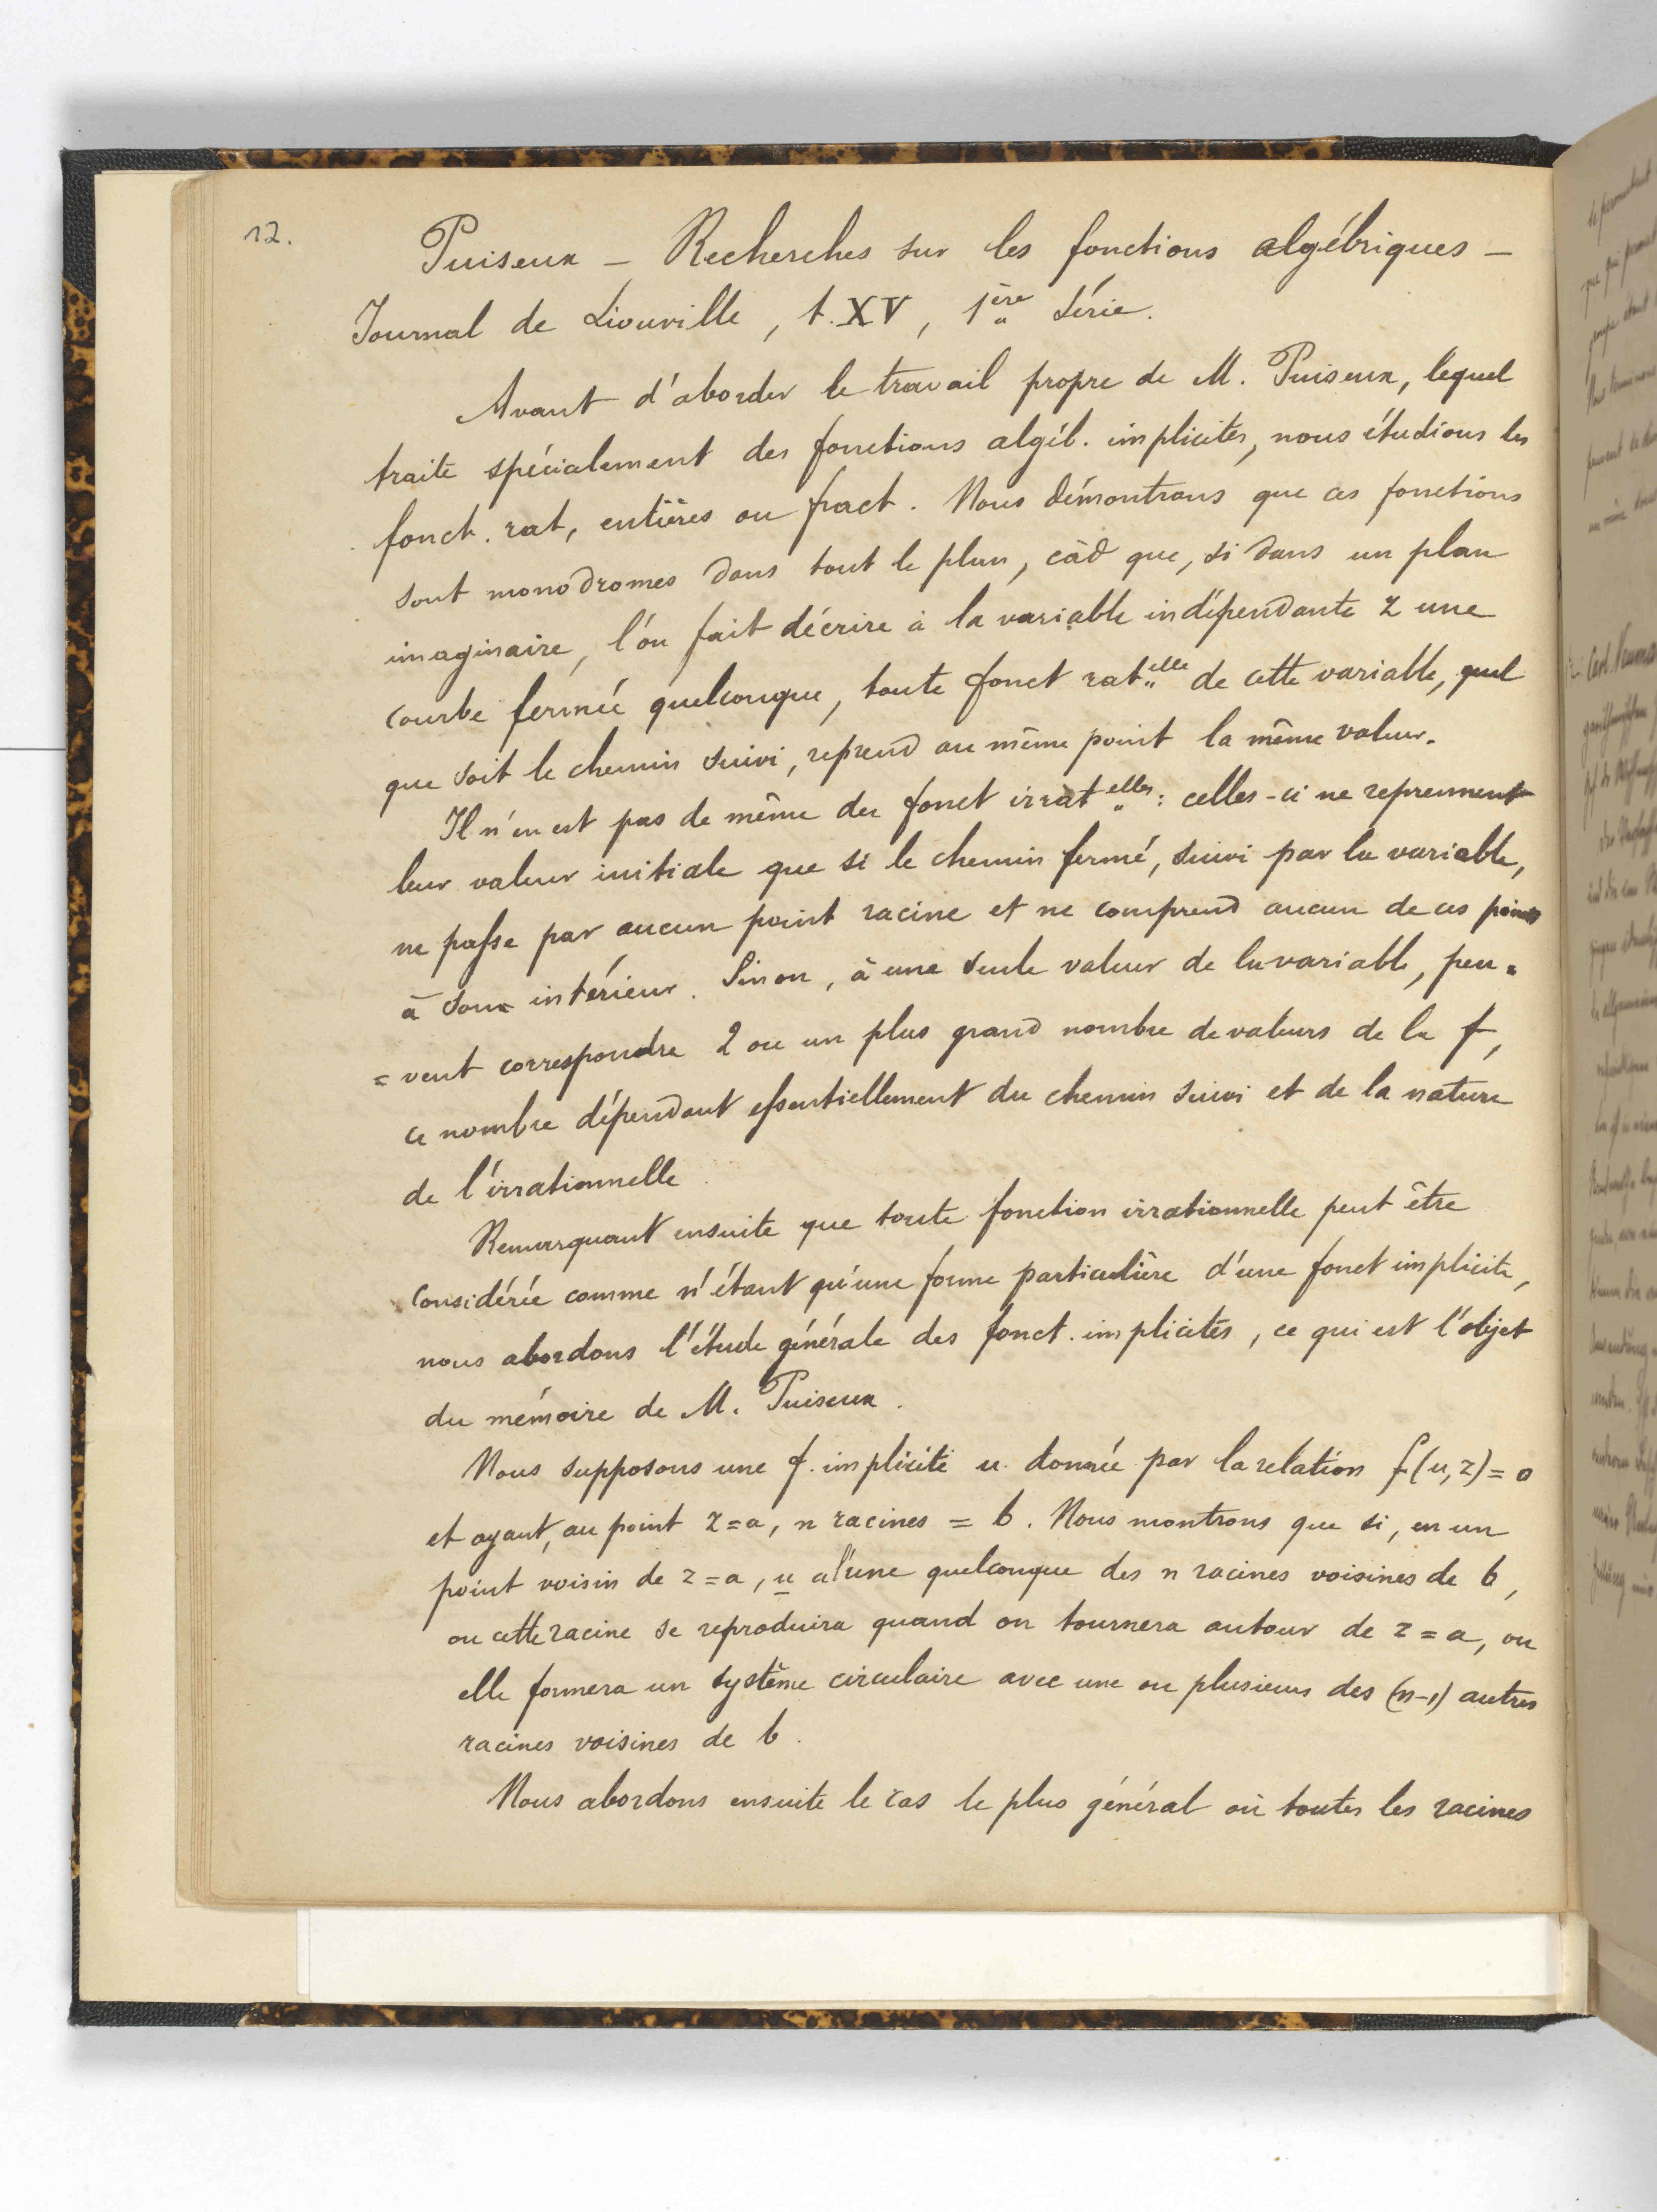 12.
Puiseux — Recherches sur les fonctions algébriques —
Journal de Liouville, t. XV, 1ère Série.
Avant d'aborder le travail propre de M. Puiseux, lequel
traite spécialement des fonctions algéb. implicites, nous étudions les
fonct. rat, entières ou fract. Nous démontrons que ces fonctions
sont monodromes dans tout le plan, càd que, si dans un plan
imaginaire, l'on fait décrire à la variable indépendante z une
courbe fermée quelconque, toute fonct rat.elle de cette variable, quel
que soit le chemin suivi, reprend au même point la même valeur.
Il n'en est pas de même des fonct irrat elles : celles-ci ne reprennent
leur valeur initiale que si le chemin fermé, suivi par la variable,
ne passe par aucun point racine et ne comprend aucun de ces points
à son intérieur. Sinon, à une seule valeur de la variable, peu=
=vent correspondre 2 ou un plus grand nombre de valeurs de la f,
ce nombre dépendant essentiellement du chemin suivi et de la nature
de l'irrationnelle.
Remarquant ensuite que toute fonction irrationnelle peut être
considérée comme n'étant qu'une forme particulière d'une fonct implicite,
nous abordons l'étude générale des fonct. implicites, ce qui est l'objet
du mémoire de M. Puiseux.
Nous supposons une f. implicite u donnée par la relation f(u,z)=0
et ayant, au point z=a, n racines = b. Nous montrons que si, en un
point voisin de z=a, u a l'une quelconque des n racines voisines de b,
ou cette racine se reproduira quand on tournera autour de z=a, ou
elle formera un système circulaire avec une ou plusieurs des (n-1) autres
racines voisines de b.
Nous abordons ensuite le cas le plus général où toutes les racines